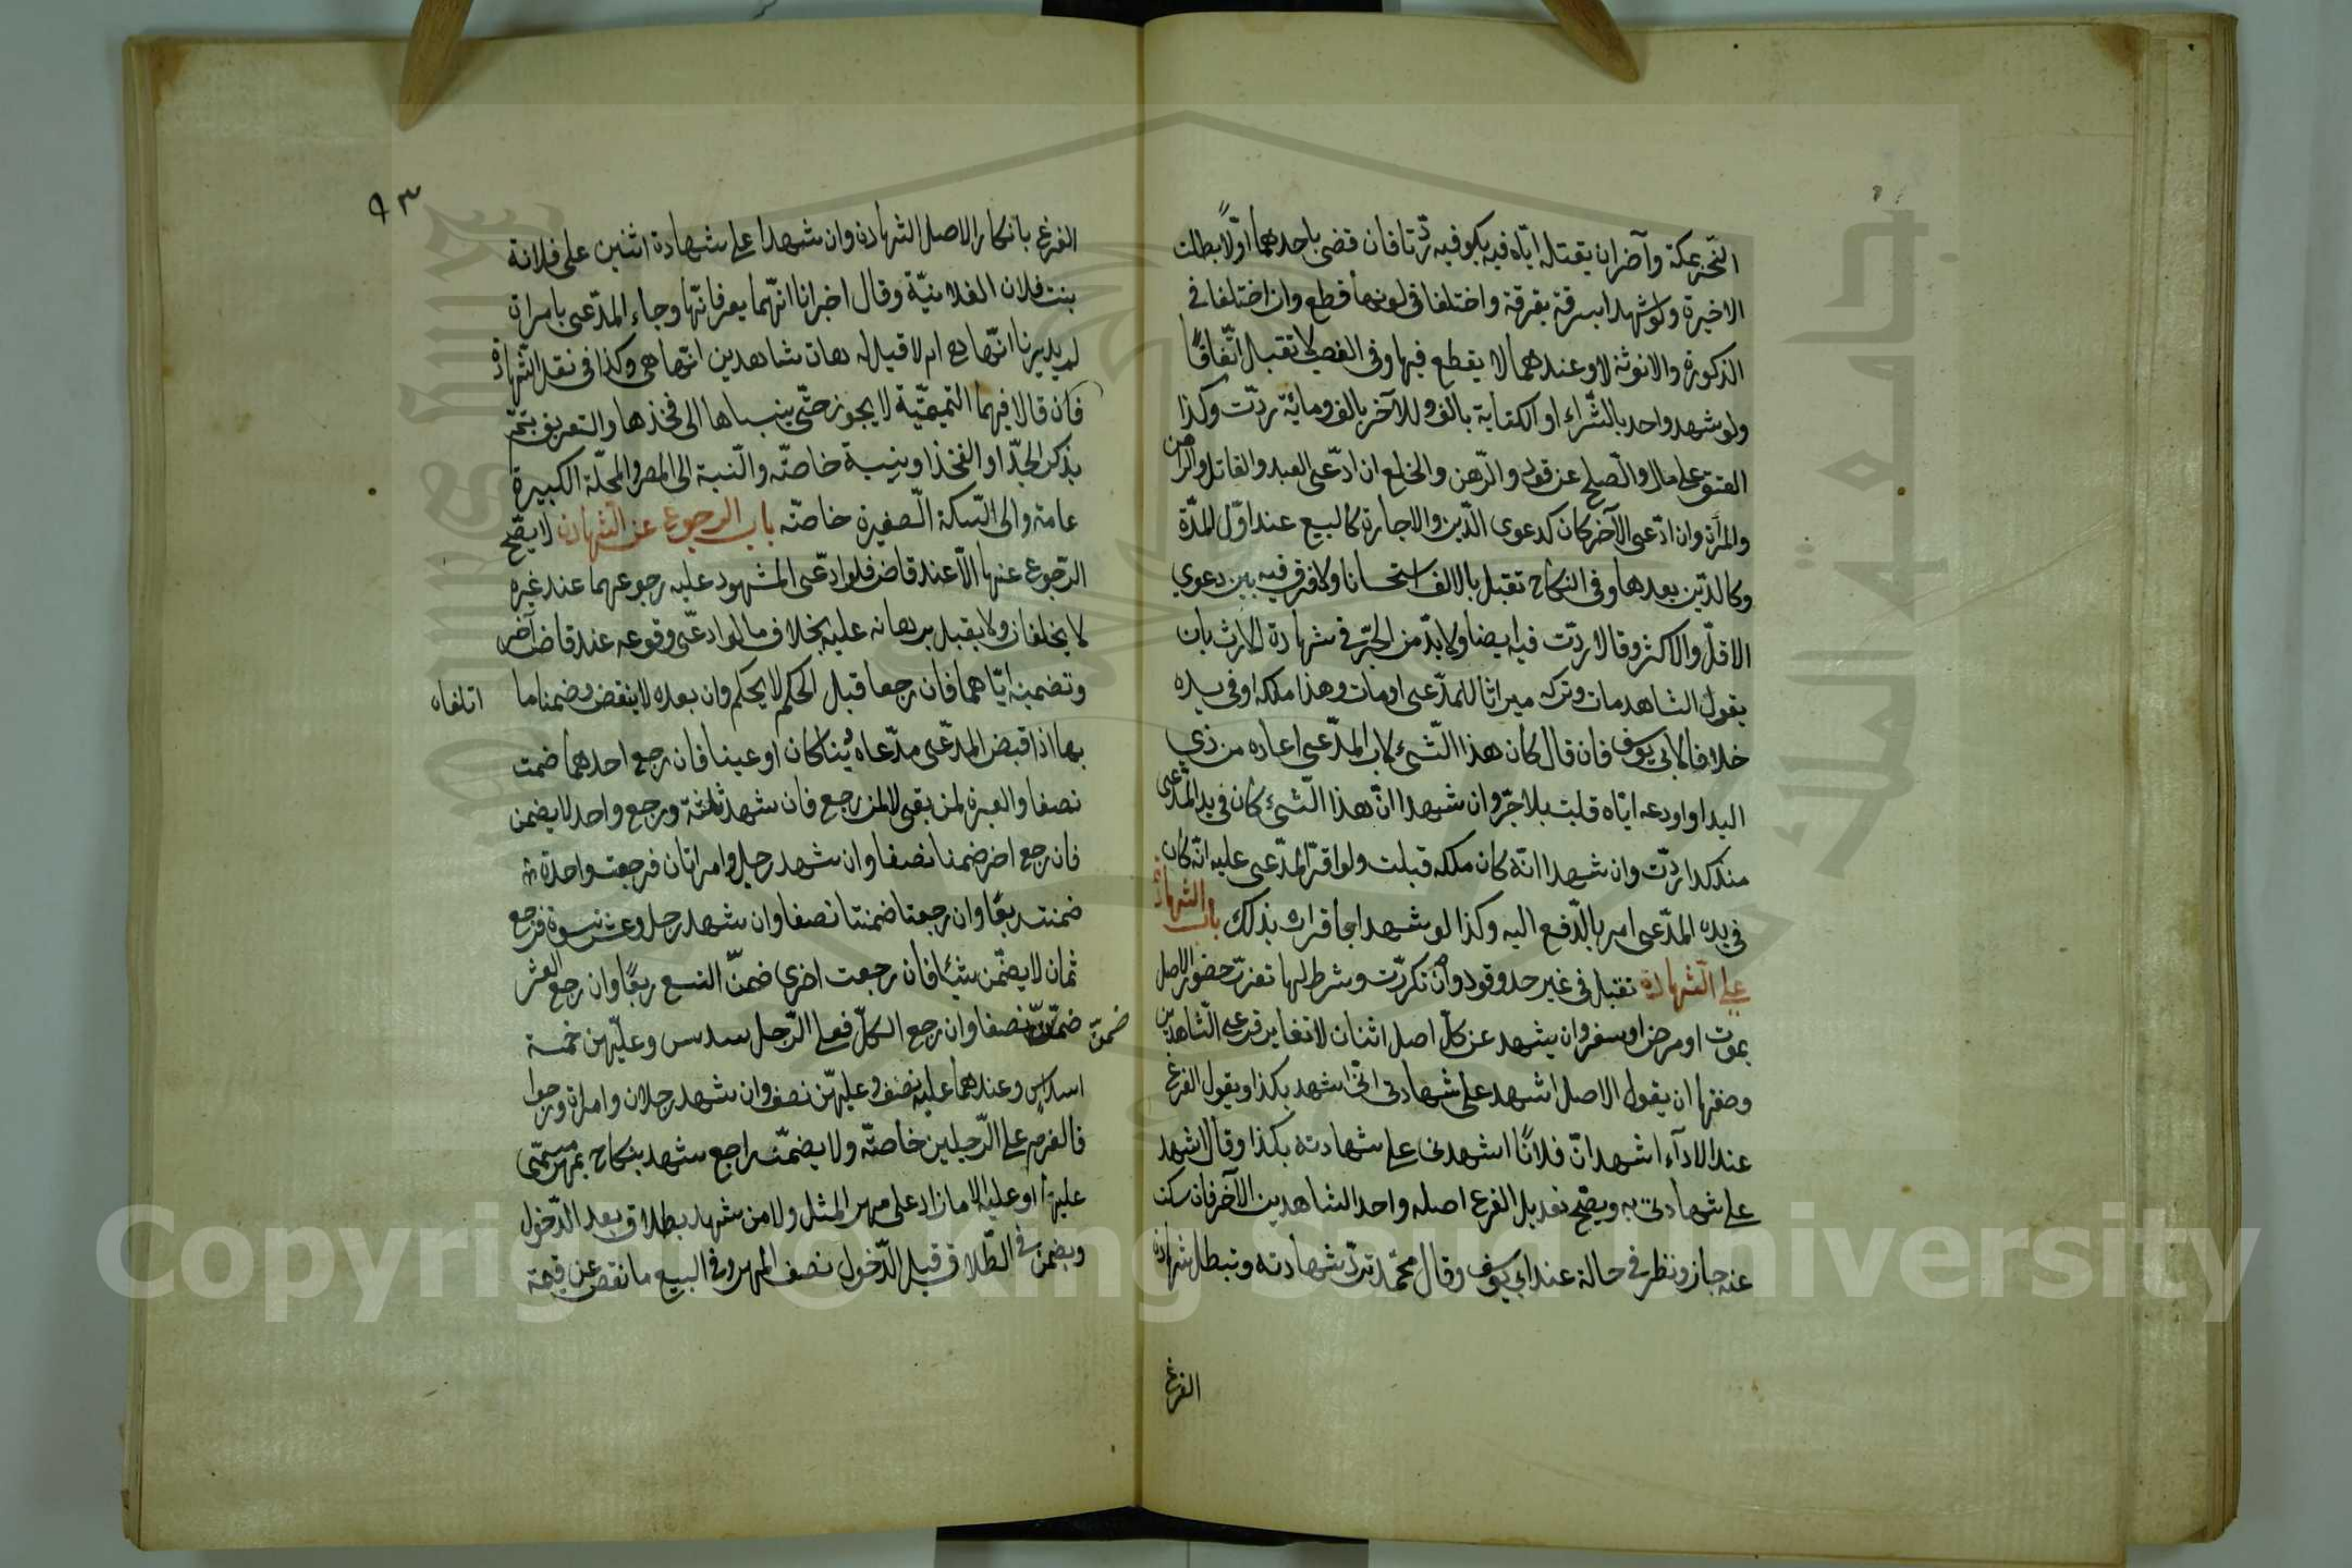 النحر بمكة وآخران بقتله اياه فيه بكوفة ردّتا فان قضى باحدهما اولاً بطلت
الاخيرة ولو شهدا بسرقة بقرة واختلفا فى لونها قطع وان اختلفا فى
الذكورة والانوثة لا وعندهما لا يقطع فيها وفى الغصب لا تقبل اتّفاقًا
ولو شهد واحد بالشّراء او الكتابة بالف وللآخر بالف ومائة ردّت وكذا
العتق على مال والصّلح عن قود والرّهن والخلع ان ادّعى العبد والقاتل والراهن
والمرأة وان ادّعى الآخر كان كدعوى الدّين والاجارة كالبيع عند اوّل المدّة
وكالدّين بعدها وفى النكاح تقبل بالالف استحسانا ولا فرق فيه بين دعوى
الاقلّ والاكثر وقالا ردّت فيه ايضا ولا بدّ من الجرّ فى شهادة الارث بان
يقول الشاهد مات وتركه ميراثا للمدّعى او مات وهذا ملكه او فى يده
خلافا لابى يوسف فان قال كان هذا الشّئ لاب المدّعى اعاره من ذي
اليد او اودعه ايّاه قبلت بلا جرّ وان شهدا انّ هذا الشّئ كان فى يد المدّعى
منذ كذا ردّت وان شهدا انّه كان ملكه قبلت ولو اقرّ المدّعى عليه انّه كان
فى يده المدّعى امر بالدّفع اليه وكذا لو شهدا باقراره بذلك باب الشهادة
على الشّهادة تقبل فى غير حد وقود وان تكررّت وشرط لها تعذر حضور الاصل
بموت او مرض او سفر وان يشهد عن كلّ اصل اثنان لا تغاير فرعى الشّاهدين
وصفتها ان يقول الاصل اشهد على شهادتى انّى اشهد بكذا ويقول الفرع
عند الاداء اشهد انّ فلانًا اشهدنى على شهادته بكذا وقال اشهد
على شهادتى به ويصّح تعديل الفرع اصله واحد الشاهدين الآخر فان سكت
عنه جاز ونظر فى حاله عند ابي يوسف وقال محمّد تردّ شهادته وتبطل شهادة
الفرع
٩٣
الفرع بانكار الاصل الشهادة وان شهدا على شهادة اثنين على فلانة
بنت فلان الفلانيّة وقال اخبرانا انّهما يعرفانها وجاء المدّعى بامراة
لم يدريا انّها هي ام لا قيل له هات شاهدين انّها هى وكذا فى نقل الشّهادة
فان قالا فيهما التميميّة لا يجوز حتّى ينسباها الى فخذها والتعريف يتمّ
بذكر الجدّ او الفخذ او بنسبة خاصّة والنّسبة الى المصر والمحلّة الكبيرة
عامة والى السّكة الصّغيرة خاصّة باب الرجوع عن الشهادة لا يصّح
الرّجوع عنها الاّ عند قاض فلو ادّعى المشهود عليه رجوعهما عند غيره
لا يحلفان ولا يقبل برهانه عليه بخلاف ما لو ادعّى وقوعه عند قاض آخر
وتضمينه ايّاهما فان رجعا قبل الحكم لا يحكم وان بعده لا ينقض وضمنا ما اتلفاه
بها اذا قبض المدّعى مدّعاه دُينا كان او عينا فان رجع احدهما ضمن
نصفا والعبرة لمن بقى لا لمن رجع فان شهد ثلثة ورجع واحد لا يضمن
فان رجع اخر ضمنا نصفا وان شهد رجل وامراتان فرجعت واحدة
ضمنت ربعًا وان رجعتا ضمنتا نصفا وان شهد رجل وعشر نسوة فرجع
ثمان لا يضمّن شيئا فان رجعت اخرى ضمنّ التسع ربعًا وان رجع العشر
ضمنّ نصفا وان رجع الكلّ فعلى الرّجل سدس وعليّهن خمسة
ضمنّ
اسداس وعندهما عليه نصف وعليهنّ نصف وان شهد رجلان وامراة ورجعوا
فالغرم على الرّجلين خاصّة ولا يضمن راجع شهد بنكاح بمهر مسمّى
عليها او عليه الا ما زاد على مهر المثل ولا من شهد بطلاق بعد الدّخول
ويضمن فى الطّلاق قبل الدّخول نصف المهر وفى البيع ما نقص عن قيمة
Copyright © King Saud University